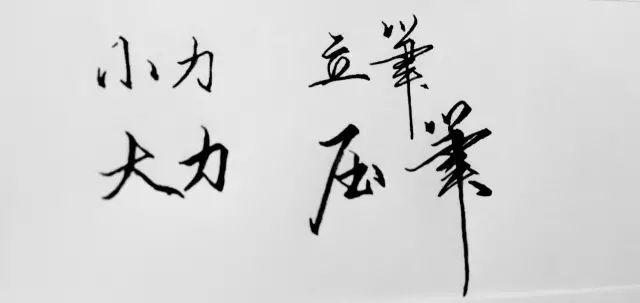 小力 立筆
大力 压筆